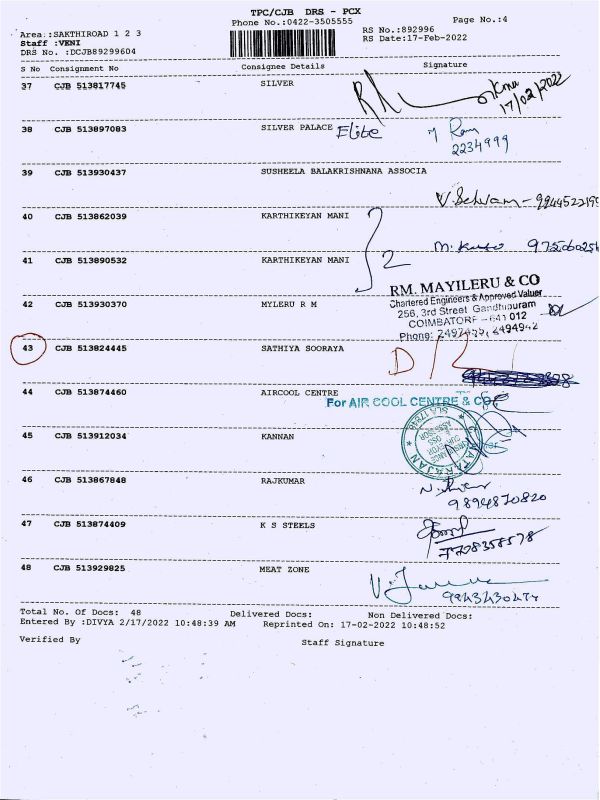 TPC/CJB DRS - PCX
Phone No.:0422-3505555
Page No.:4
Area.:SAKTHIROAD 1 2 3
RS No.:892996
Staff :VENI
RS Date:17-Feb-2022
DRS No. :DCJB89299604
S No Consignment No Consignee Details Signature
37 CJB 513817745 SILVER
17/02/2022
38 CJB 513897083 SILVER PALACE Elite
2234999
39 CJB 513930437 SUSHEELA BALAKRISHNANA ASSOCIA
40 CJB 513862039 KARTHIKEYAN MANI
2
41 CJB 513890532 KARTHIKEYAN MANI
RM. MAYILERU & CO
Chartered Engineers & Approved Valuer
42 CJB 513930370 MYLERU R M
256, 3rd Street Gandhipuram
COIMBATORE - 641 012
Phone: 2494942
43 CJB 513824445 SATHIYA SOORAYA
44 CJB 513874460 AIRCOOL CENTRE
For AIR COOL CENTRE & CO
45 CJB 513912034 KANNAN
46 CJB 513867848 RAJKUMAR
9894870820
47 CJB 513874409 K S STEELS
7708358578
48 CJB 513929825 MEAT ZONE
Total No. Of Docs: 48 Delivered Docs: Non Delivered Docs:
Entered By :DIVYA 2/17/2022 10:48:39 AM Reprinted On: 17-02-2022 10:48:52
Verified By Staff Signature